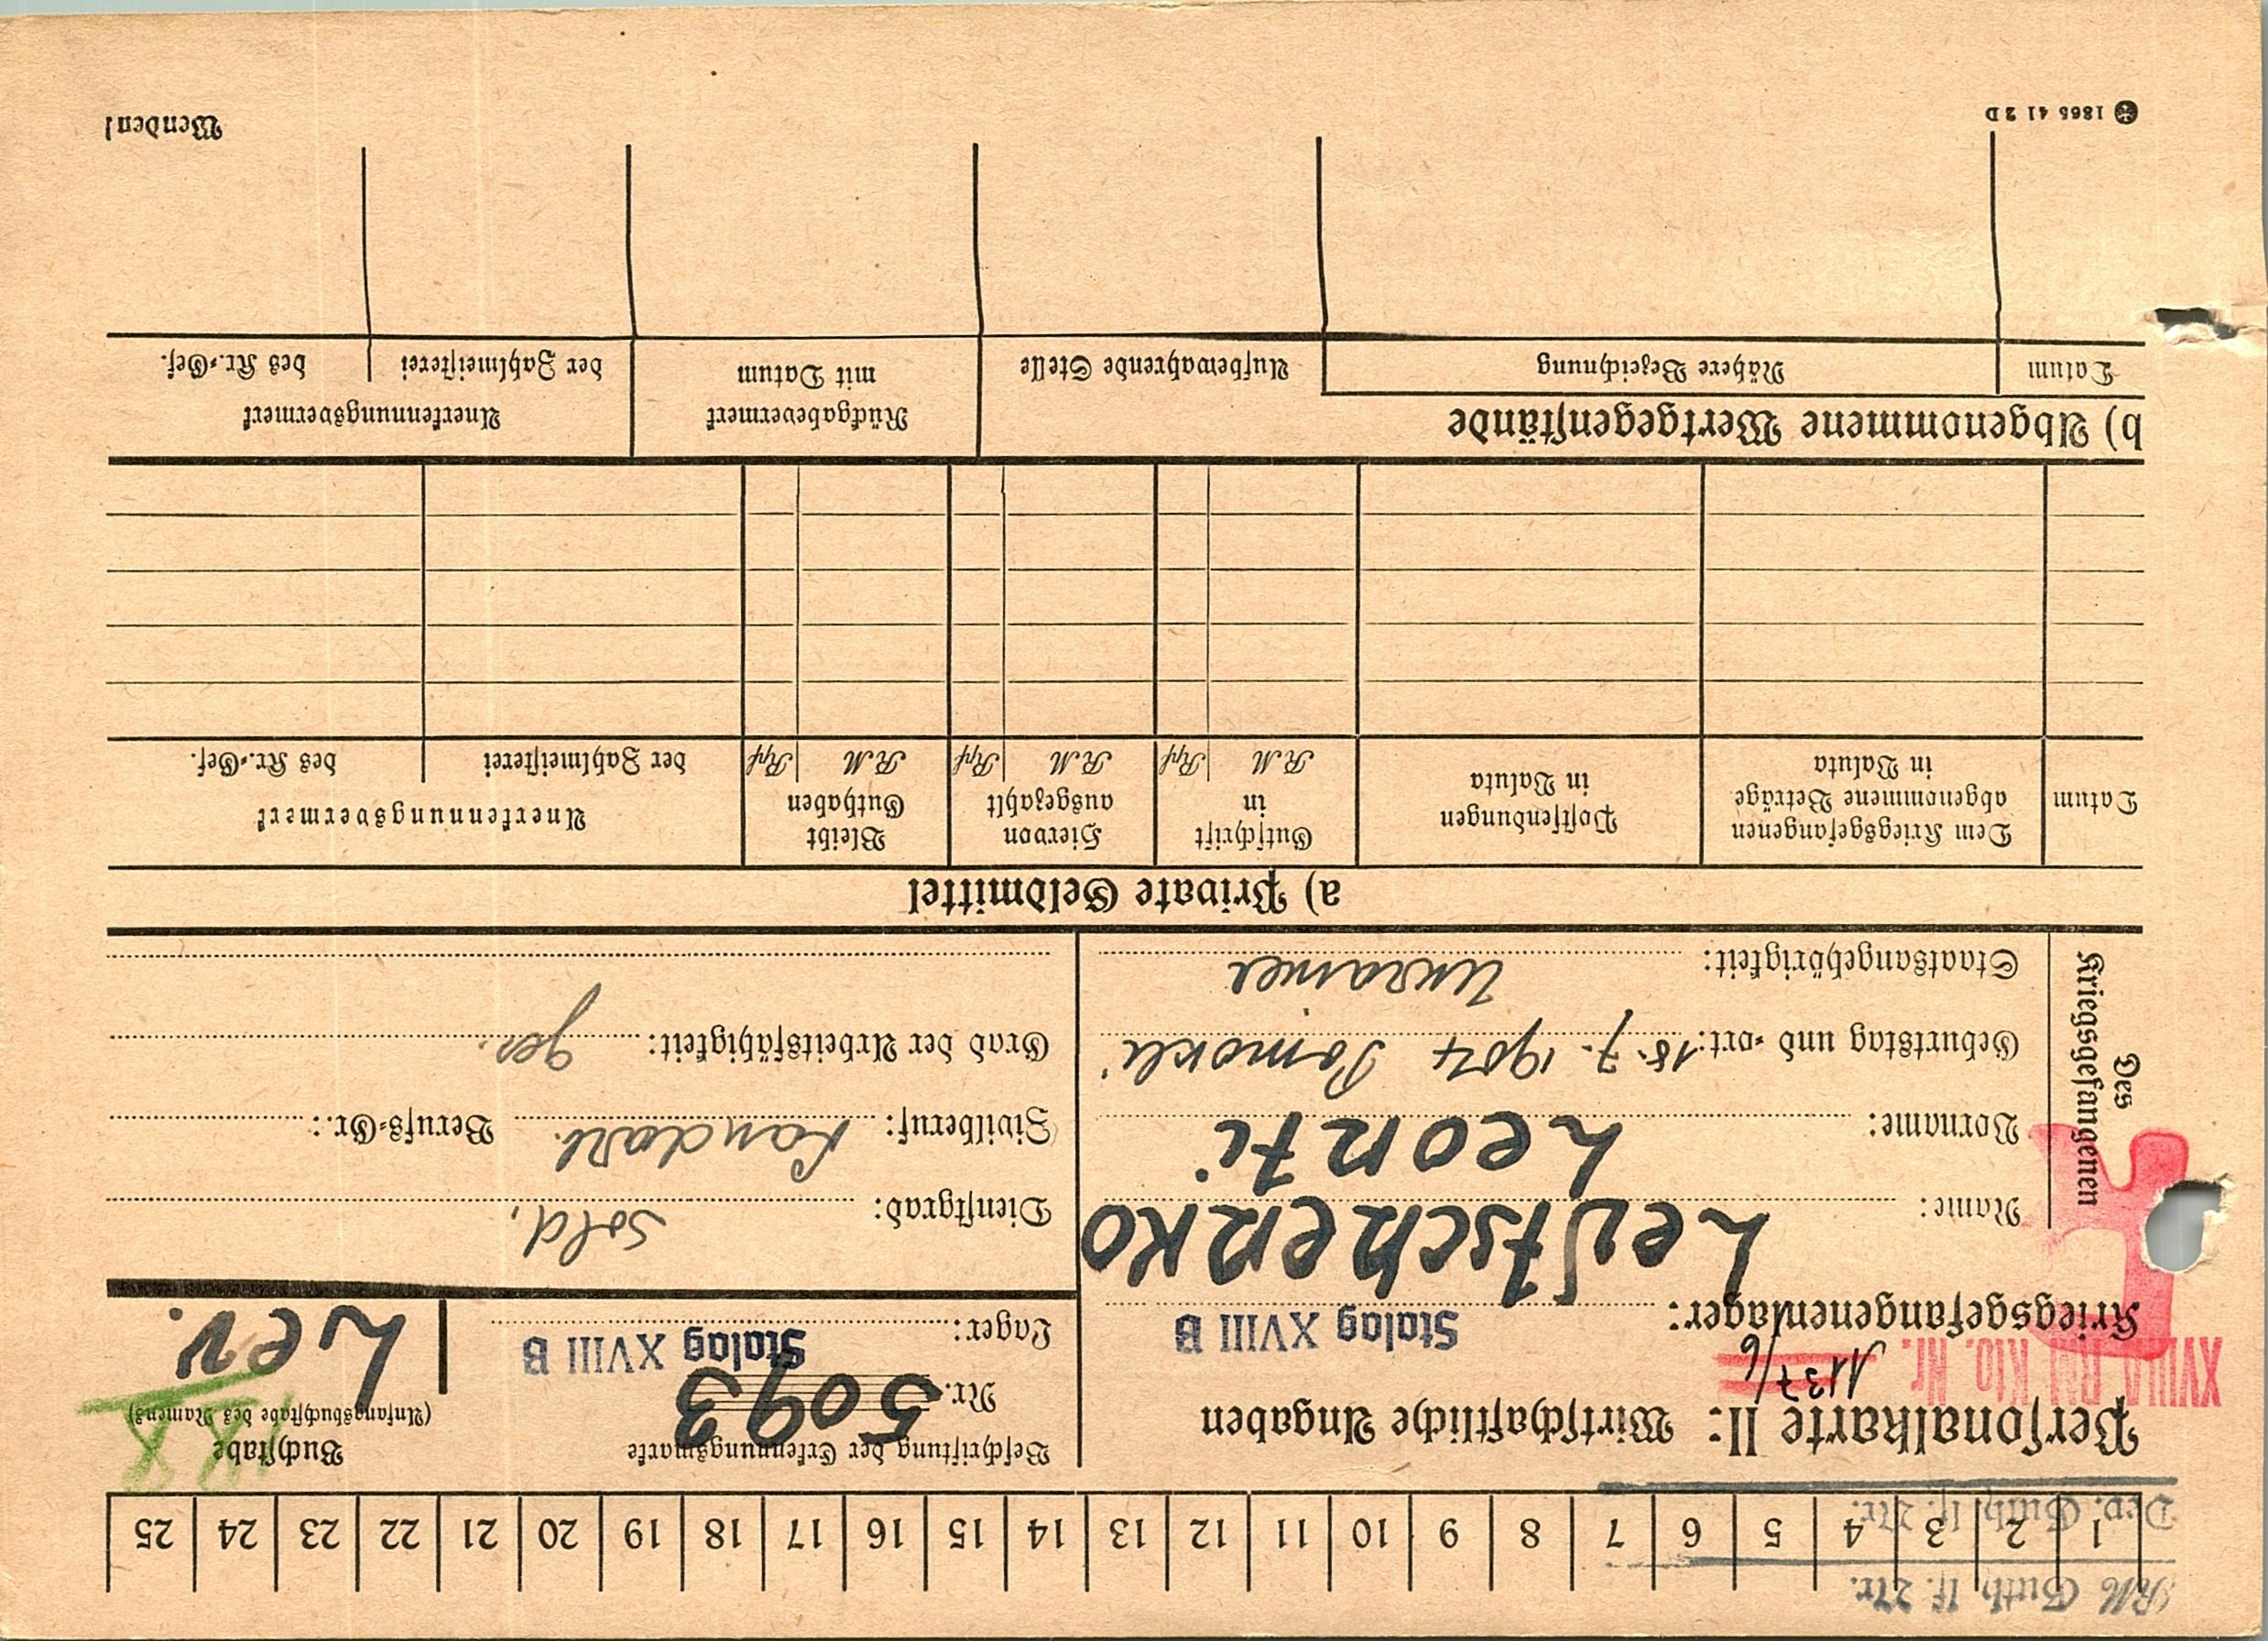 RM Guth. lf. Nr.
Dev. Guth. lf. Nr.
1 2 3 4 5 6 7 8 9 10 11 12 13 14 15 16 17 18 19 20 21 22 23 24 25
Personalkarte II: Wirtschaftliche Angaben
XVIIIA RM Kto. Nr. 1137/6
Kriegsgefangenenlager: Stalag XVIII B
Beschriftung der Erkennungsmarke
Nr. 5093
Lager: Stalag XVIII B
Buchstabe
(Anfangsbuchstabe des Namens)
Lev.
Des Kriegsgefangenen
Name: Levtschenko
Vorname: Leonti
Geburtstag und -ort: 18. 7. 1904
Staatsangehörigkeit: Ukrainer
Dienstgrad: Sold.
Zivilberuf: Landarb. Berufs-Gr.:
Grad der Arbeitsfähigkeit: ges.
a) Private Geldmittel
Datum
Dem Kriegsgefangenen abgenommene Beträge in Valuta
Postsendungen in Valuta
Gutschrift in
RM Rpf
Hiervon ausgezahlt
RM Rpf
Bleibt Guthaben
RM Rpf
Anerkennungsvermerk
der Zahlmeisterei
des Kr.-Gef.
b) Abgenommene Wertgegenstände
Datum
Nähere Bezeichnung
Aufbewahrende Stelle
Rückgabevermerk mit Datum
Anerkennungsvermerk
der Zahlmeisterei
des Kr.-Gef.
1865 41 2 D
Wenden!